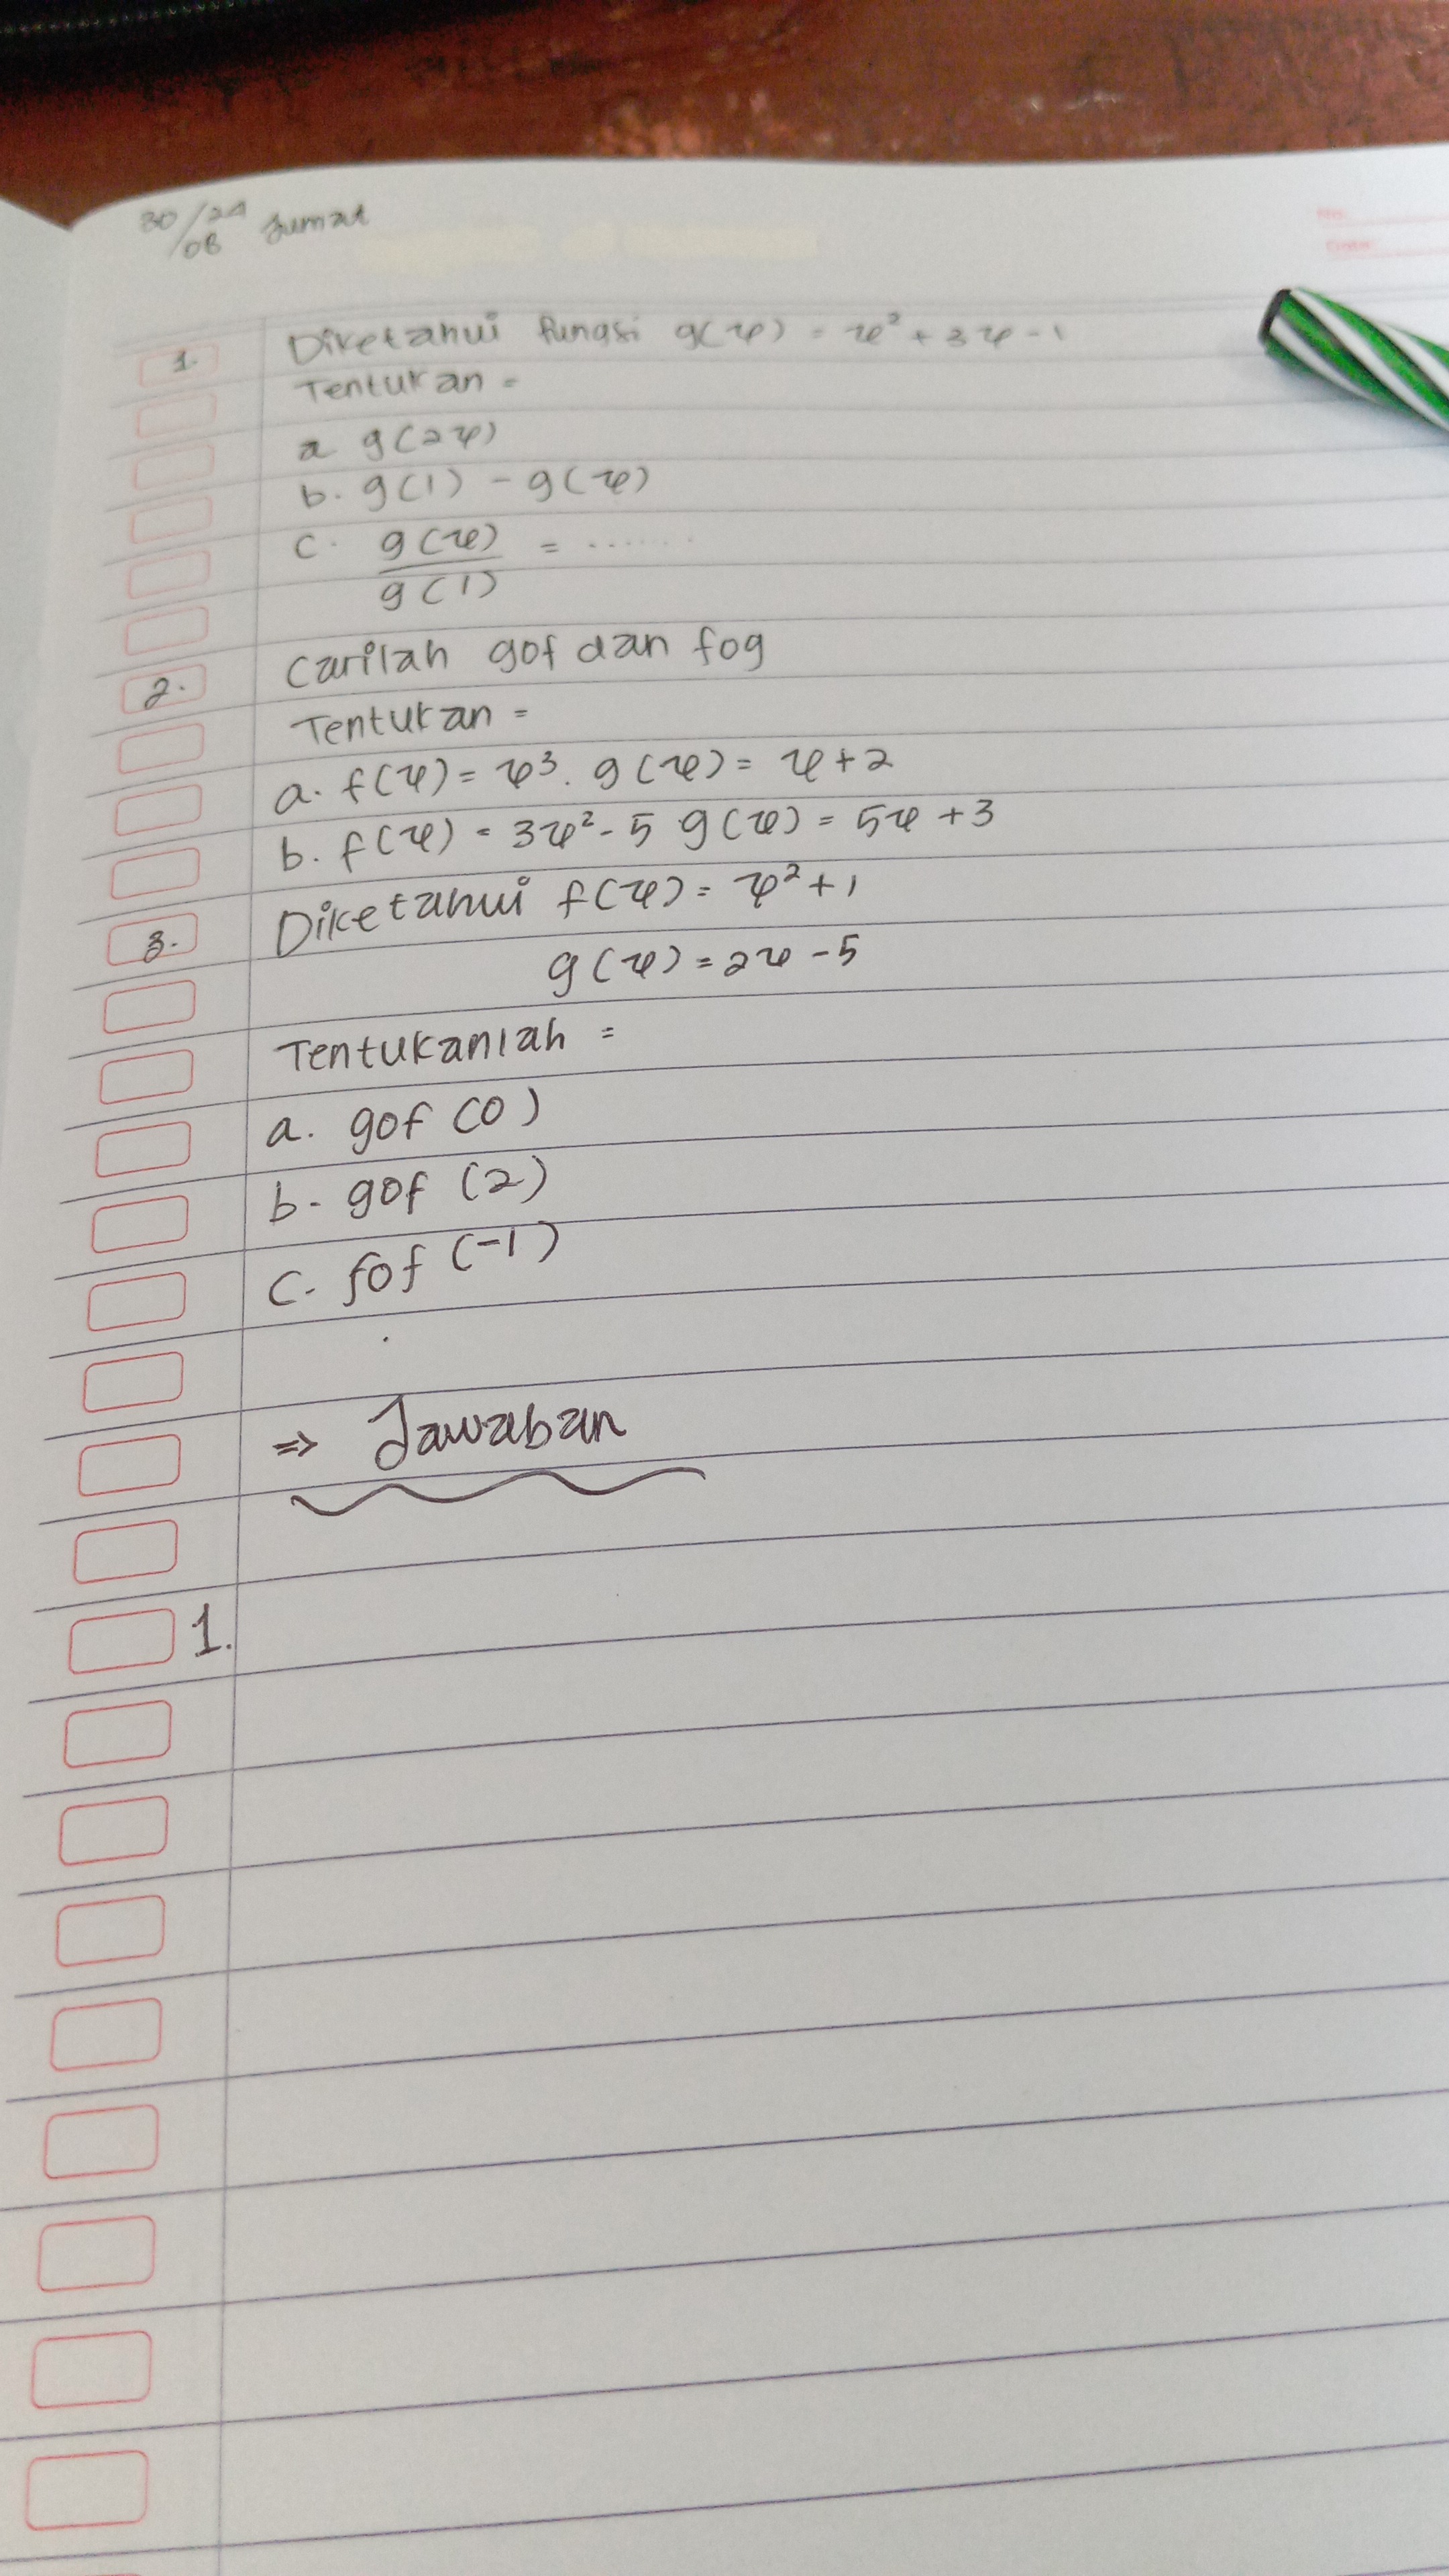 30/08/24 Jumat
1. Diketahui fungsi g(x) = x² + 3x - 1
Tentukan =
a g(2x)
b. g(1) - g(x)
c. g(x)/g(1) = .......
2. Carilah gof dan fog
Tentukan =
a. f(x) = x³. g(x) = x + 2
b. f(x) = 3x² - 5 g(x) = 5x + 3
3. Diketahui f(x) = x² + 1
g(x) = 2x - 5
Tentukanlah =
a. gof (0)
b- gof (2)
c. fof (-1)
⇒ Jawaban
1.